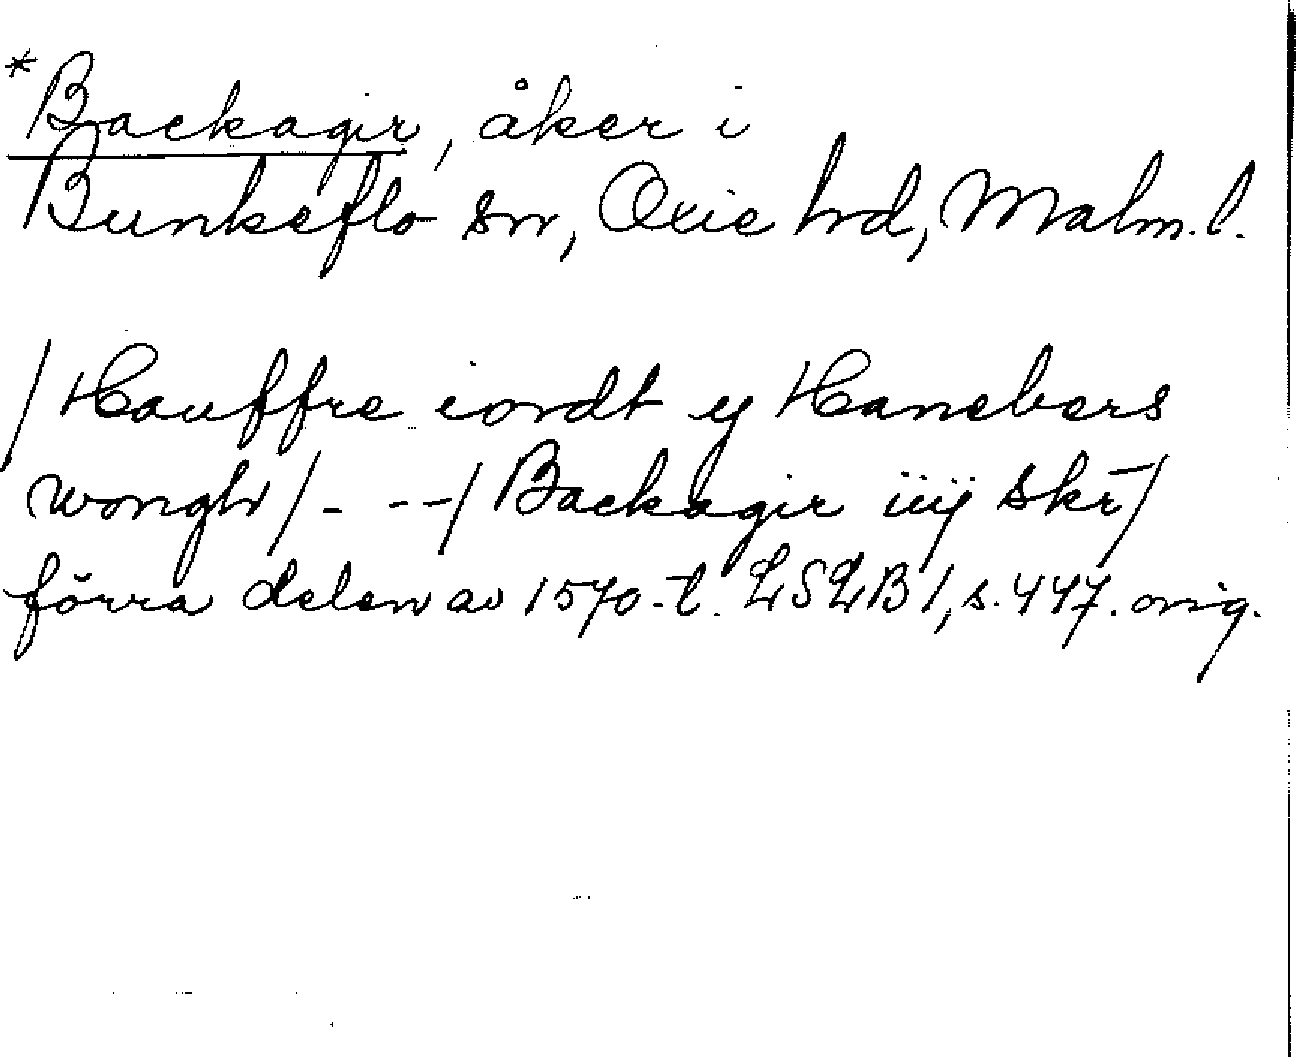 *Backagir, åker i
Bunkeflo sn, Oxie hd, Malm. l.
/Hauffre iordt y Hanebers
wongh/- --/Backagir iiij skr̄/
förra delen av 1570-t. LSLB 1, s. 447. orig.